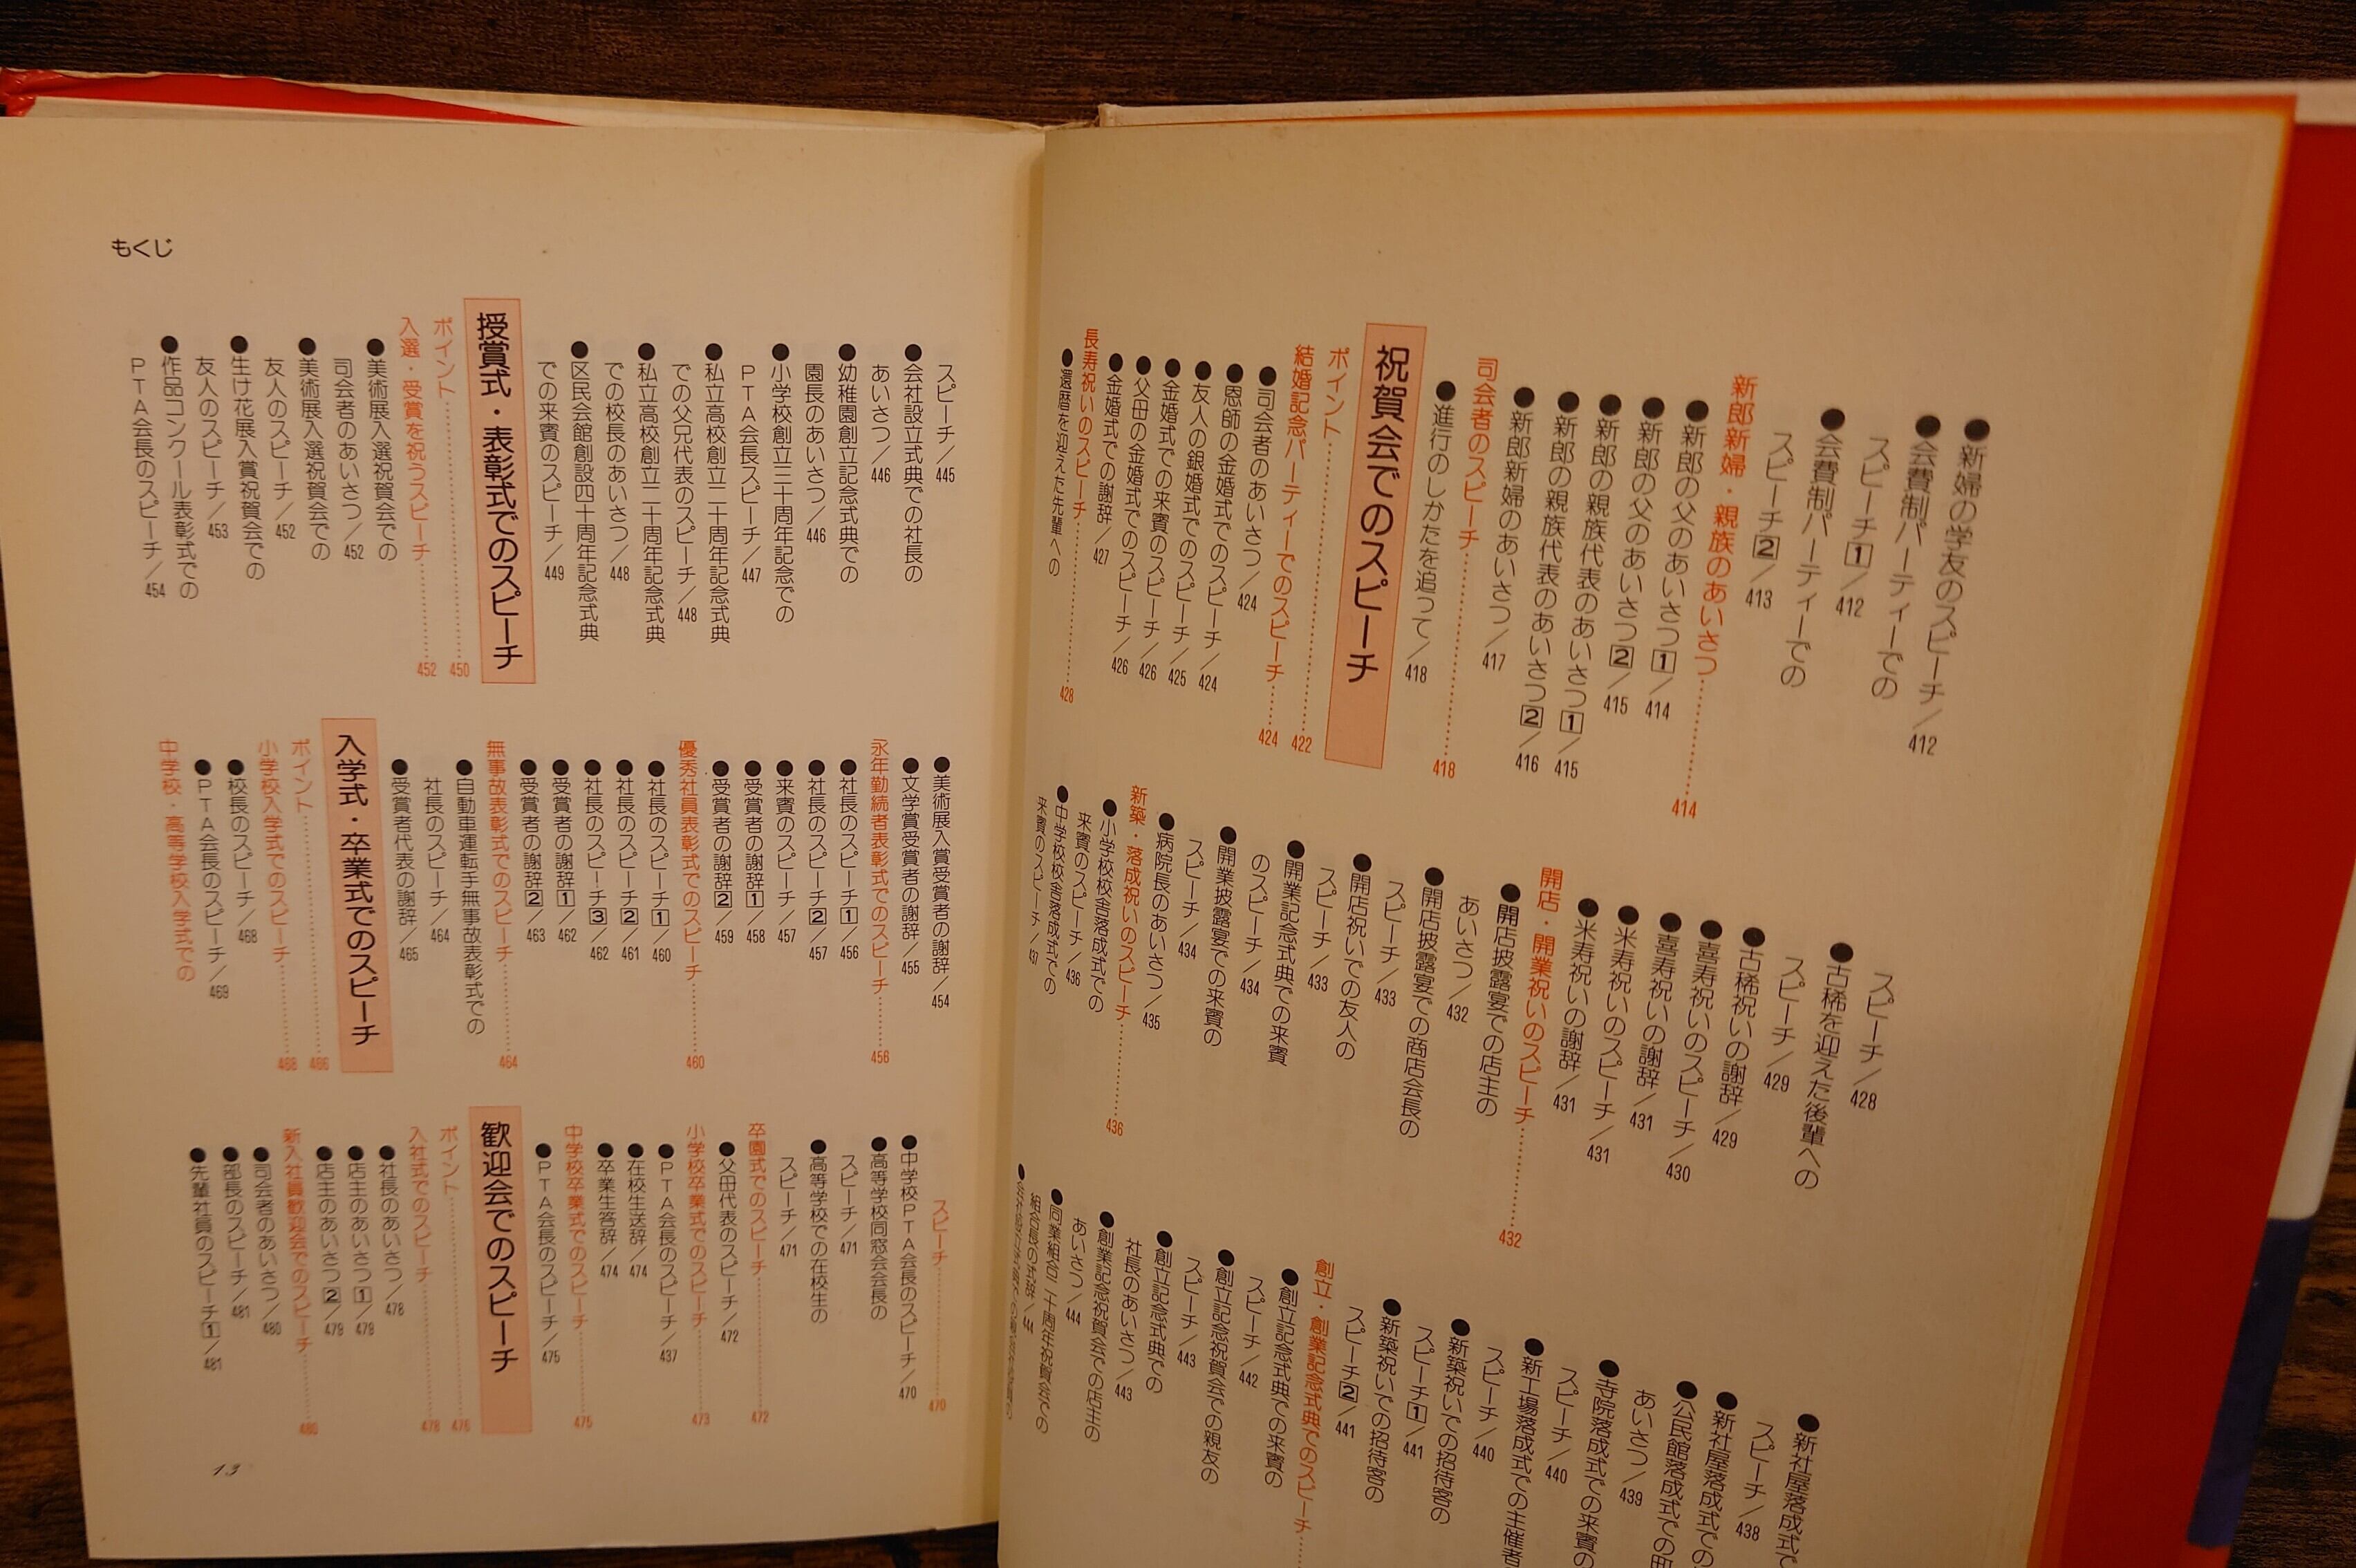 ●新婦の学友のスピーチ／412
●会費制パーティーでの
スピーチ1／412
●会費制パーティーでの
スピーチ2／413
新郎新婦・親族のあいさつ……414
●新郎の父のあいさつ1／414
●新郎の父のあいさつ2／415
●新郎の親族代表のあいさつ1／415
●新郎の親族代表のあいさつ2／416
●新郎新婦のあいさつ／417
司会者のスピーチ……418
●進行のしかたを追って／418
祝賀会でのスピーチ
ポイント……422
結婚記念パーティーでのスピーチ……424
●司会者のあいさつ／424
●恩師の金婚式でのスピーチ／424
●友人の銀婚式でのスピーチ／425
●金婚式での来賓のスピーチ／426
●父母の金婚式でのスピーチ／426
●金婚式での謝辞／427
長寿祝いのスピーチ……428
●還暦を迎えた先輩への
スピーチ／428
●古稀を迎えた後輩への
スピーチ／429
●古稀祝いの謝辞／429
●喜寿祝いのスピーチ／430
●喜寿祝いの謝辞／431
●米寿祝いのスピーチ／431
●米寿祝いの謝辞／431
開店・開業祝いのスピーチ……432
●開店披露宴での店主の
あいさつ／432
●開店披露宴での商店会長の
スピーチ／433
●開店祝いでの友人の
スピーチ／433
●開業記念式典での来賓
のスピーチ／434
●開業披露宴での来賓の
スピーチ／434
●病院長のあいさつ／435
新築・落成祝いのスピーチ……436
●小学校校舎落成式での
来賓のスピーチ／436
●中学校校舎落成式での
来賓のスピーチ／437
●新社屋落成式で
スピーチ／438
●新社屋落成式での
●公民館落成式での町
あいさつ／439
●寺院落成式での来賓の
スピーチ／440
●新工場落成式での主催者
スピーチ／440
●新築祝いでの招待客の
スピーチ1／441
●新築祝いでの招待客の
スピーチ2／441
創立・創業記念式典でのスピーチ……
●創立記念式典での来賓の
スピーチ／442
●創立記念祝賀会での親友の
スピーチ／443
●創立記念式典での
社長のあいさつ／443
●創業記念祝賀会での店主の
あいさつ／444
●同業組合二十周年祝賀会での
組合長の式辞／444
もくじ
スピーチ／445
●会社設立式典での社長の
あいさつ／446
●幼稚園創立記念式典での
園長のあいさつ／446
●小学校創立三十周年記念での
PTA会長スピーチ／447
●私立高校創立二十周年記念式典
での父兄代表のスピーチ／448
●私立高校創立二十周年記念式典
での校長のあいさつ／448
●区民会館創設四十周年記念式典
での来賓のスピーチ／449
授賞式・表彰式でのスピーチ
ポイント……450
入選・受賞を祝うスピーチ……452
●美術展入選祝賀会での
司会者のあいさつ／452
●美術展入選祝賀会での
友人のスピーチ／452
●生け花展入賞祝賀会での
友人のスピーチ／453
●作品コンクール表彰式での
PTA会長のスピーチ／454
●美術展入賞受賞者の謝辞／454
●文学賞受賞者の謝辞／455
永年勤続者表彰式でのスピーチ……456
●社長のスピーチ1／456
●社長のスピーチ2／457
●来賓のスピーチ／457
●受賞者の謝辞1／458
●受賞者の謝辞2／459
優秀社員表彰式でのスピーチ……460
●社長のスピーチ1／460
●社長のスピーチ2／461
●社長のスピーチ3／462
●受賞者の謝辞1／462
●受賞者の謝辞2／463
無事故表彰式でのスピーチ……464
●自動車運転手無事故表彰式での
社長のスピーチ／464
●受賞者代表の謝辞／465
入学式・卒業式でのスピーチ
ポイント……466
小学校入学式でのスピーチ……468
●校長のスピーチ／468
●PTA会長のスピーチ／469
中学校・高等学校入学式での
スピーチ……470
●中学校PTA会長のスピーチ／470
●高等学校同窓会会長の
スピーチ／471
●高等学校での在校生の
スピーチ／471
卒園式でのスピーチ……472
●父母代表のスピーチ／472
小学校卒業式でのスピーチ……473
●PTA会長のスピーチ／437
●在校生送辞／474
●卒業生答辞／474
中学校卒業式でのスピーチ……475
●PTA会長のスピーチ／475
歓迎会でのスピーチ
ポイント……476
入社式でのスピーチ……478
●社長のあいさつ／478
●店主のあいさつ1／479
●店主のあいさつ2／479
新入社員歓迎会でのスピーチ……480
●司会者のあいさつ／480
●部長のスピーチ／481
●先輩社員のスピーチ1／481
13